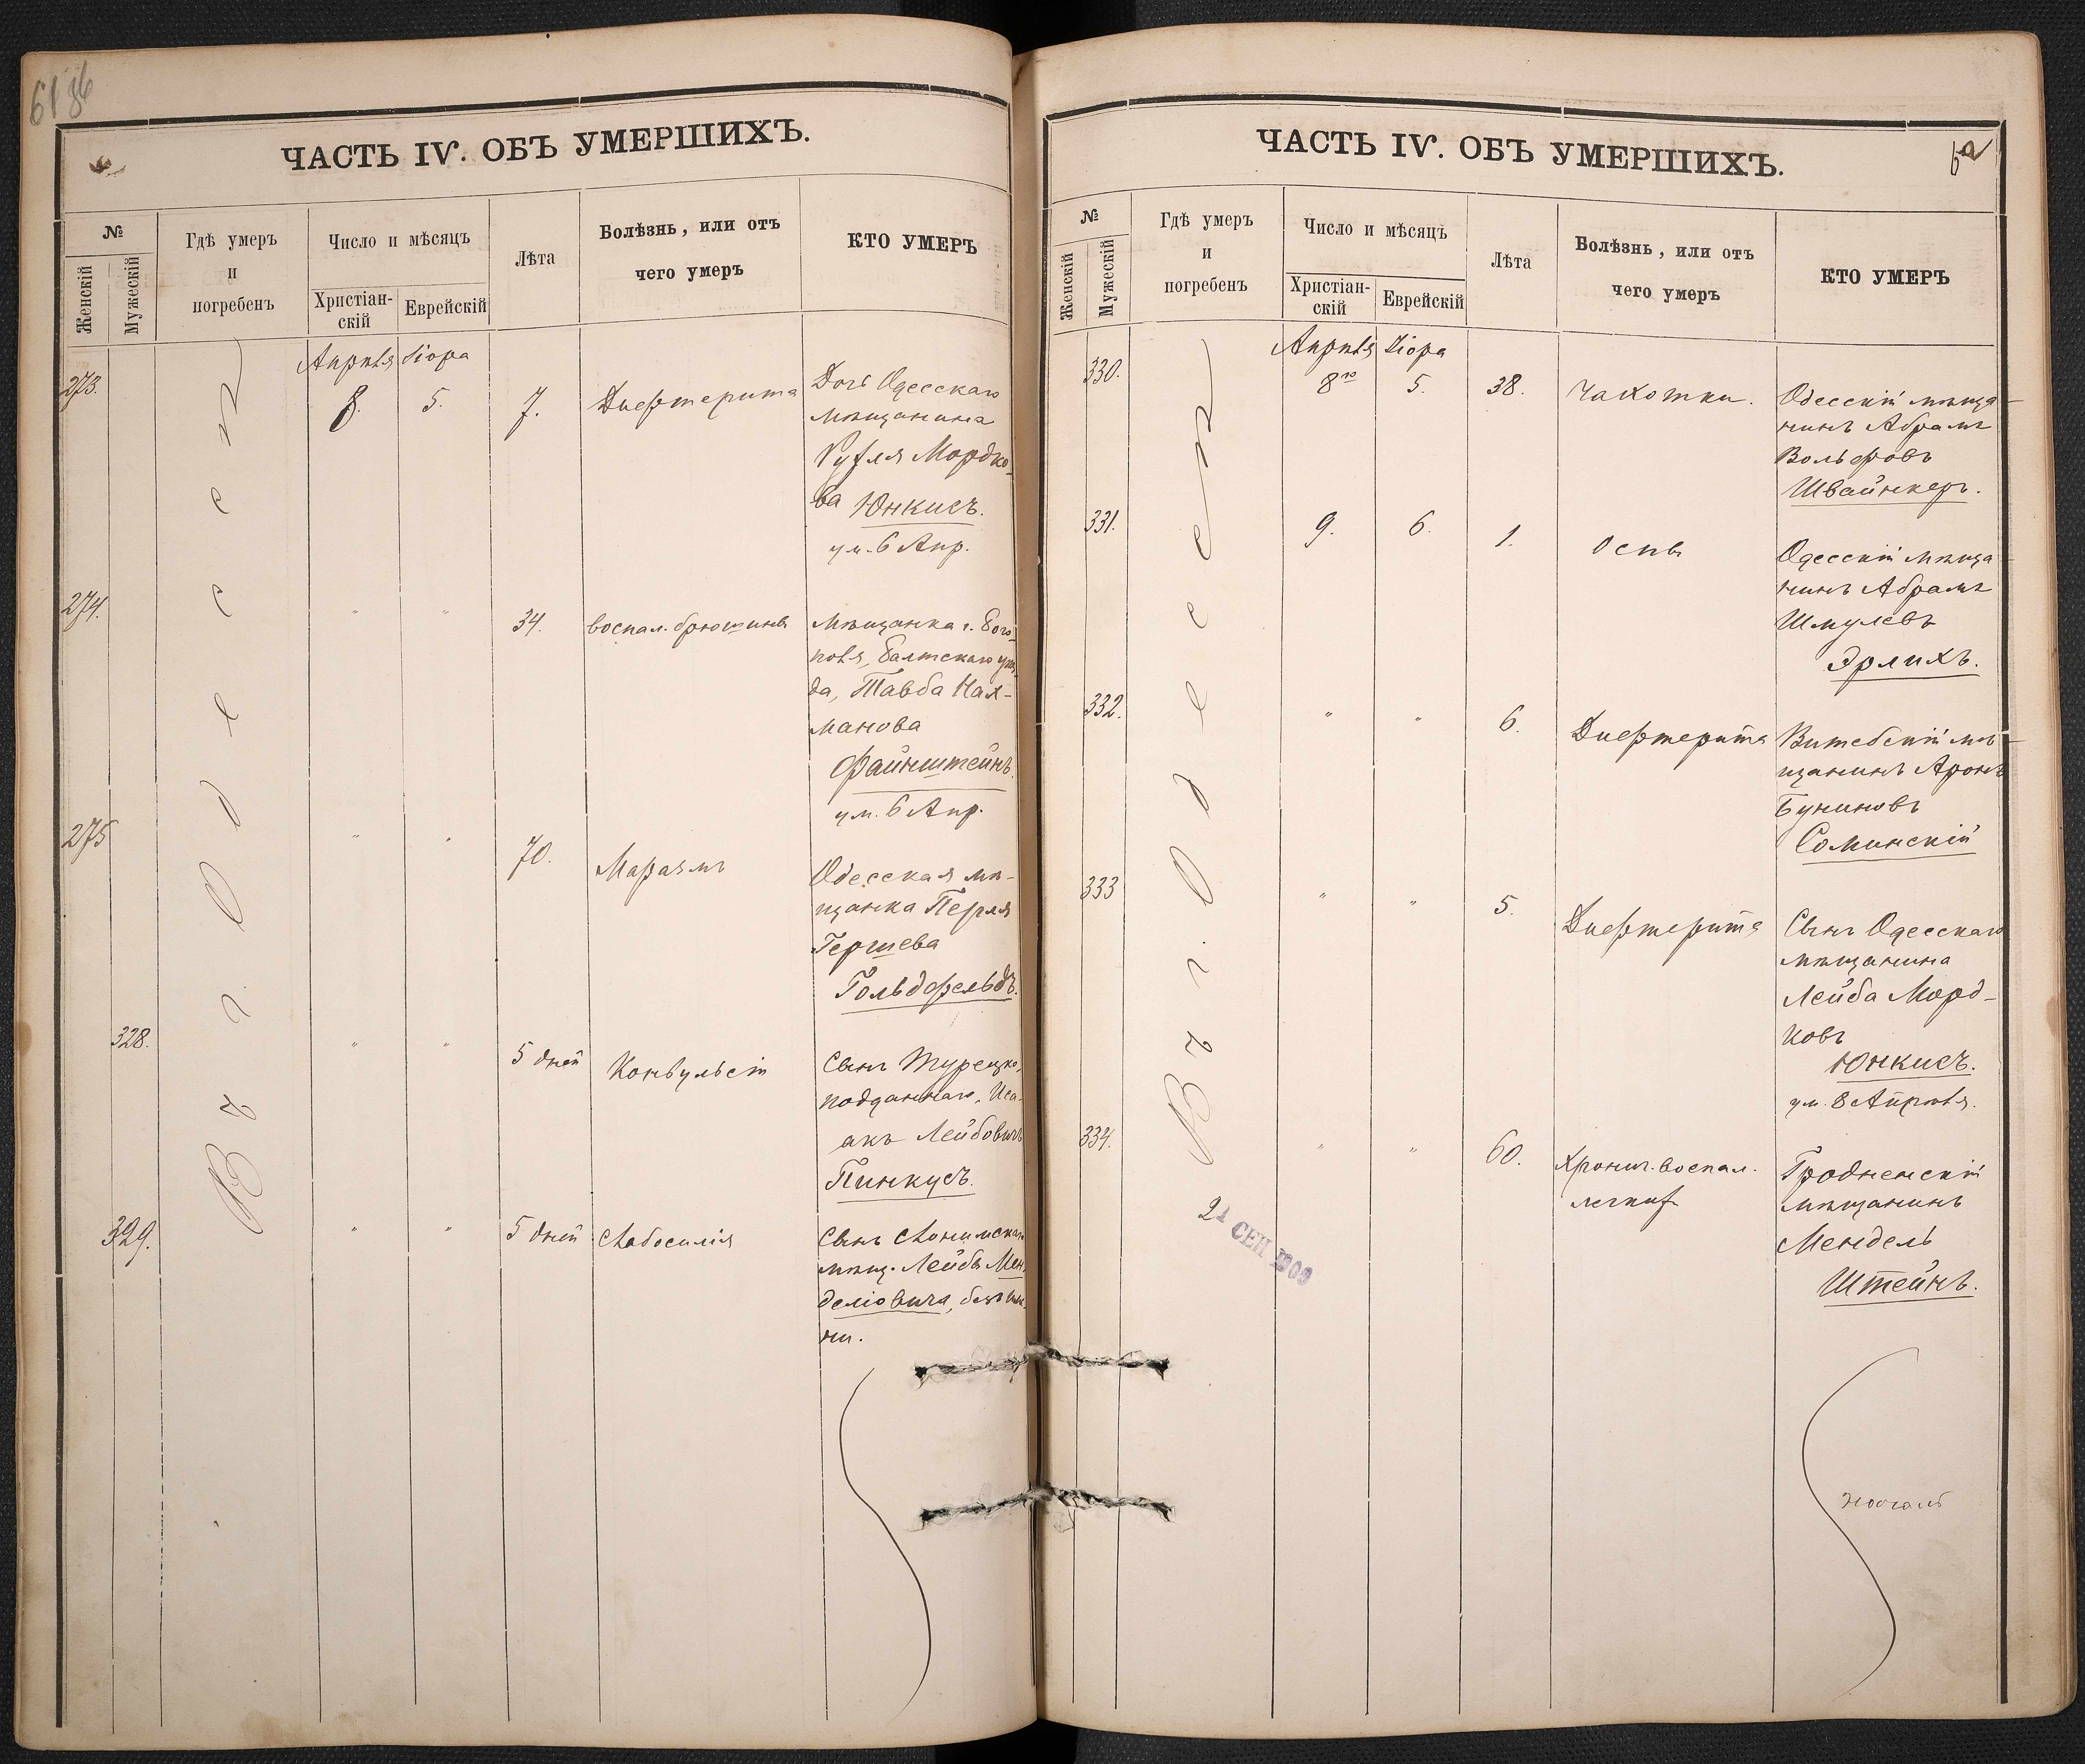 61 об
ЧАСТЬ IV. ОБЪ УМЕРШИХЪ.
№
Женскій
Мужескій
Гдѣ умеръ
и
погребенъ
Число и мѣсяцъ
Христіан-
скій
Еврейскій
Лѣта
Болѣзнь, или отъ
чего умеръ
КТО УМЕРЪ
Въ г. Одессѣ
Апрѣля Ііора
273. 8. 5. 7. Дифтерита
Дочь Одесскаго
мѣщанина
Рухля Мордко-
ва Юнкисъ.
ум. 6 Апр.
274. " " 34. воспал. брюшины
Мѣщанка г. Бого-
поля, Балтскаго уѣз-
да, Тавба Нах-
манова
Файнштейнъ.
ум. 6 Апр.
275 " " 70. Маразмъ
Одесская мѣ-
щанка Перля
Гершева
Гольдфельдъ.
328. " " 5 дней Конвульсій
Сынъ Турецко-
подданнаго, Иса-
акъ Лейбовичъ
Пинкусъ.
329. " " 5 дней Слабосилія
Сынъ Слонимскаго
мѣщ. Лейбы Мен-
деліовича, безъ им.
ни.
62
ЧАСТЬ IV. ОБЪ УМЕРШИХЪ.
№
Женскій
Мужескій
Гдѣ умеръ
и
погребенъ
Число и мѣсяцъ
Христіан-
скій
Еврейскій
Лѣта
Болѣзнь, или отъ
чего умеръ
КТО УМЕРЪ
Въ г. Одессѣ
Апрѣля Ііора
330. 8го 5. 38. Чахотки.
Одесскій мѣща-
нинъ Абрамъ
Вольфовъ
Швайнкеръ.
331. 9. 6. 1. Оспы
Одесскій мѣща-
нинъ Абрамъ
Шмулевъ
Эрлихъ.
332. " " 6. Дифтерита
Витебскій мѣ-
щанинъ Аронъ
Буниновъ
Соминскій
333 " " 5. Дифтерита
Сынъ Одесскаго
мѣщанина
Лейба Морд-
ковъ
Юнкисъ.
ум. 8 Апрѣля.
334. " " 60. Хронич. воспал.
легких
Гродненскій
мѣщанинъ
Мендель
Штейнъ.
21 СЕН 1900